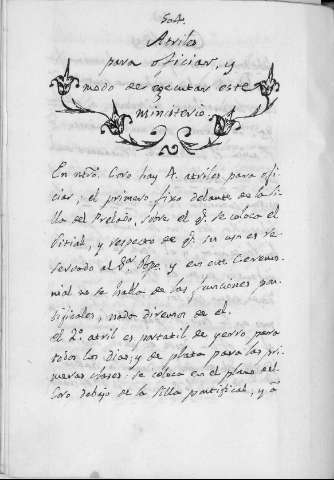 504.
Atriles
para oficiar, y
modo de egecutar este
ministerio.
En ntro. Coro hay 4. atriles para ofi-
ciar; el primero, fixo delante de la si-
lla del Prelado, sobre el q.e se coloca el
Sitial, y respecto de q.e su uso es re-
servado al S.or Obpo. y en este Ceremo-
nial no se habla de las funciones pon-
tificales, nada diremos de el.
El 2.o atril es portatil de yerro para
todos los Dias, y de plata para las pri-
meras clases: se coloca en el plano del
Coro debajo de la Silla pontifical, y á